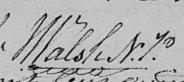 Walsh N.P.